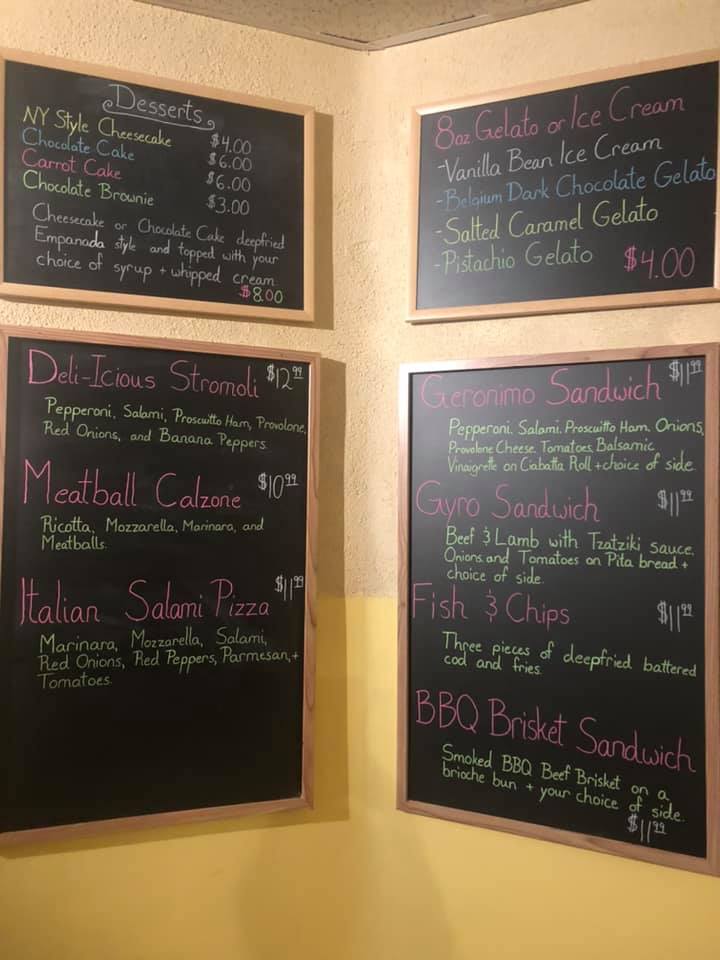 Desserts
NY Style Cheesecake $4.00
Chocolate Cake $6.00
Carrot Cake $6.00
Chocolate Brownie $3.00
Cheesecake or Chocolate Cake deepfried
Empanada style and topped with your
choice of syrup + whipped cream.
$8.00
8oz. Gelato or Ice Cream
-Vanilla Bean Ice Cream
-Belgium Dark Chocolate Gelato
-Salted Caramel Gelato
-Pistachio Gelato $4.00
Deli-Icious Stromoli $12.99
Pepperoni, Salami, Proscuitto Ham, Provolone,
Red Onions, and Banana Peppers.
Meatball Calzone $10.99
Ricotta, Mozzarella, Marinara, and
Meatballs.
Italian Salami Pizza $11.99
Marinara, Mozzarella, Salami,
Red Onions, Red Peppers, Parmesan, +
Tomatoes.
Geronimo Sandwich $11.99
Pepperoni, Salami, Proscuitto Ham, Onions,
Provolone Cheese, Tomatoes, Balsamic
Vinaugrette on Ciabatta Roll + choice of side.
Gyro Sandwich $11.99
Beef & Lamb with Tzatziki sauce,
Onions and Tomatoes on Pita bread +
choice of side.
Fish & Chips $11.99
Three pieces of deepfried battered
cod and fries.
BBQ Brisket Sandwich
Smoked BBQ Beef Brisket on a
brioche bun + your choice of side.
$11.99